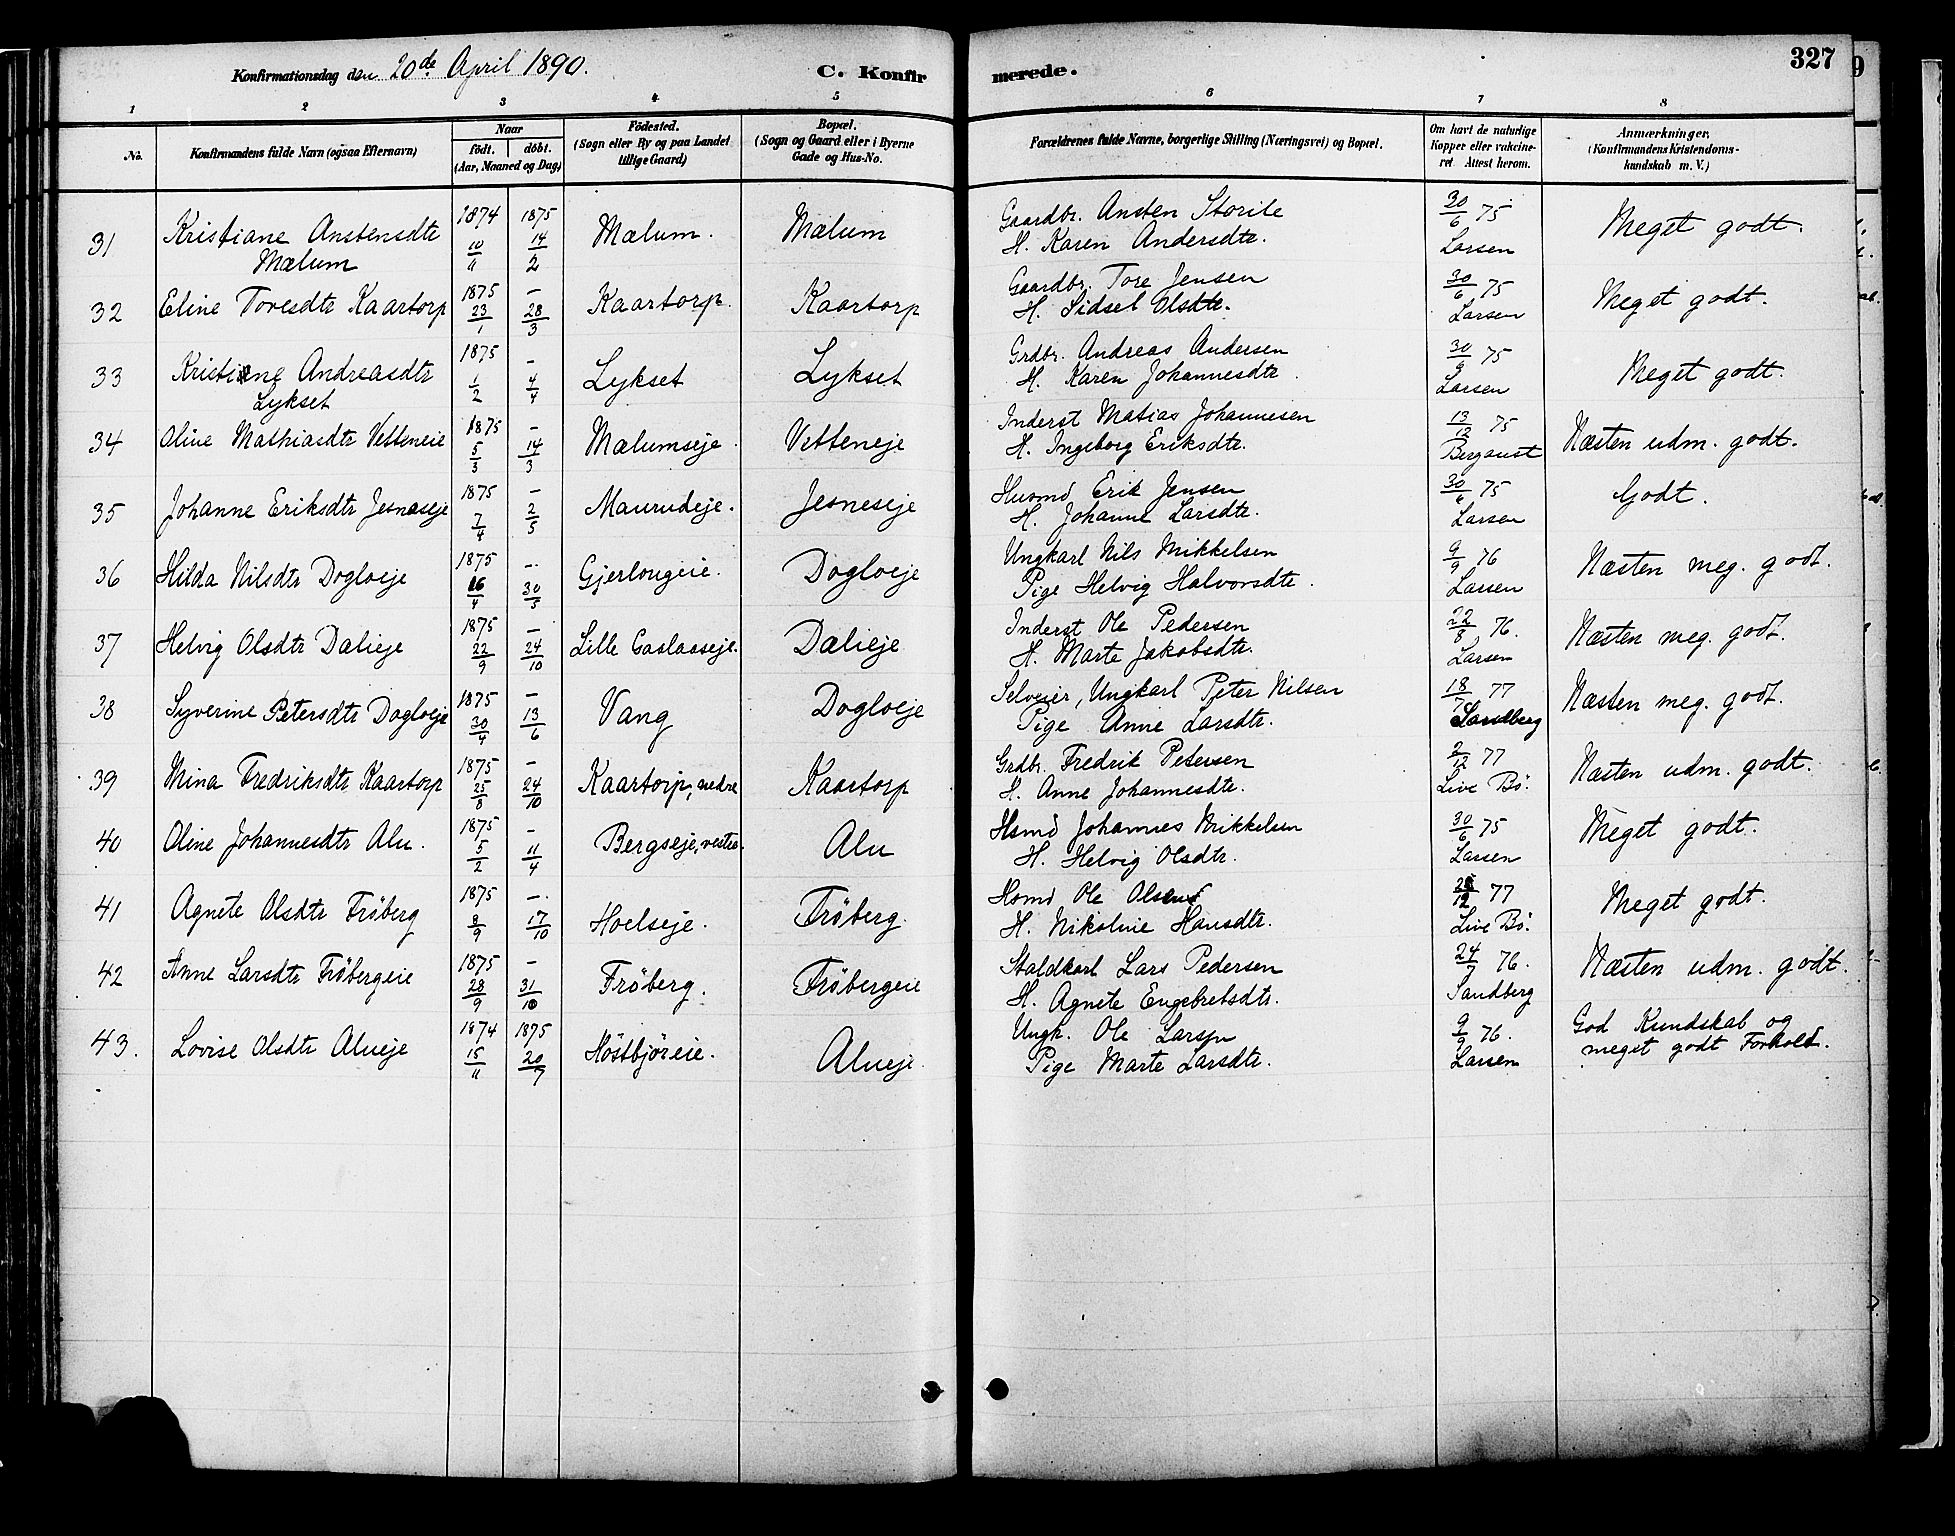 Konfirmationsdag den 20de April 1890. C. Konfir merede. 327
1 2 3 4 5 6 7 8
No. Konfirmandens fulde Navn (ogsaa Efternavn) Naar födt. döbt. (Aar, Maaned og Dag) Födested. (Sogn eller By og paa Landet tillige Gaard) Bopæl. (Sogn og Gaard eller i Byerne Gade og Hus-No. Forældrenes fulde Navne, borgerlige Stilling (Næringsvei) og Bopæl. Om havt de naturlige Kopper eller vakcineret. Attest herom. Anmærkninger. (Konfirmandens Kristendomskundskab m. V.)
31 Kristiane Anstensdtr 1874 1875 Mælum. Mælum Gaardbr. Ansten Storile 30/6 75 Meget godt.
Mælum 10/11 14/2 H. Karen Andersdtr. Larsen
32 Eline Toresdtr Kaartorp 1875 – Kaartorp. Kaartorp Gaardbr. Tore Jensen 30/6 75 Meget godt.
23/1 28/3 H. Sidsel Olsdtr. Larsen
33 Kristiane Andreasdtr 1875 – Lykset Lykset Grdbr. Andreas Andersen 30/6 75 Meget godt.
Lykset 1/2 4/4 H. Karen Johannesdtr. Larsen
34 Oline Mathiasdtr Vetteneie 1875 – Mælumseje Vetteneje Inderst Matias Johannesen 13/12 75 Næsten udm. godt.
5/3 14/3 H. Ingeborg Eriksdtr. Bergaust
35 Johanne Eriksdtr Jesneseje 1875 – Maurudeje. Jesneseje Husmd Erik Jensen 30/6 75 Godt.
7/4 2/5 H. Johanne Larsdtr. Larsen
36 Hilda Nilsdtr Dogloeje 1875 – Gjerlougeie. Dogloeje Ungkarl Nils Mikkelsen 9/9 76 Næsten meg. godt.
16/4 30/5 Pige Helvig Halvorsdtr. Larsen
37 Helvig Olsdtr Dælieje 1875 – Lille Gaslaaseje. Dælieje Inderst Ole Pedersen 22/8 76. Næsten meg. godt.
22/9 24/10 H. Marte Jakobsdtr. Larsen
38 Syverine Petersdtr Dogloeje 1875 – Vang Dogloeje Selveier, Ungkarl Peter Nilsen 18/7 77 Næsten meg. godt.
30/4 13/6 Pige Anne Larsdtr. Sandberg
39 Mina Fredriksdtr Kaartorp 1875 – Kaartorp, nedre Kaartorp Grdbr. Fredrik Petersen 2/12 77 Næsten udm. godt.
25/8 24/10 H. Anne Johannesdtr. Live Bö.
40 Oline Johannesdtr Alu. 1875 – Bergseje, vestre. Alu Hsmd Johannes Mikkelsen 30/6 75 Meget godt.
5/2 11/4 H. Helvig Olsdtr. Larsen
41 Agnete Olsdtr Fröberg 1875 – Hoelseje. Fröberg. Hsmd Ole Olsen 77 Meget godt.
8/9 17/10 H. Nikoline Hansdtr. Live Bö.
42 Anne Larsdtr Fröbergeie 1875 – Fröberg. Fröbergeie Staldkarl Lars Pedersen 24/7 76. Næsten udm. godt.
28/9 31/10 H. Agnete Engebretsdtr. Sandberg
43. Lovise Olsdtr Alueje 1874 1875 Höstbjöreie. Alueje Ungk. Ole Larsen 9/9 76. God Kundskab og
15/11 20/7 Pige Marte Larsdtr. Larsen meget godt Forhold.